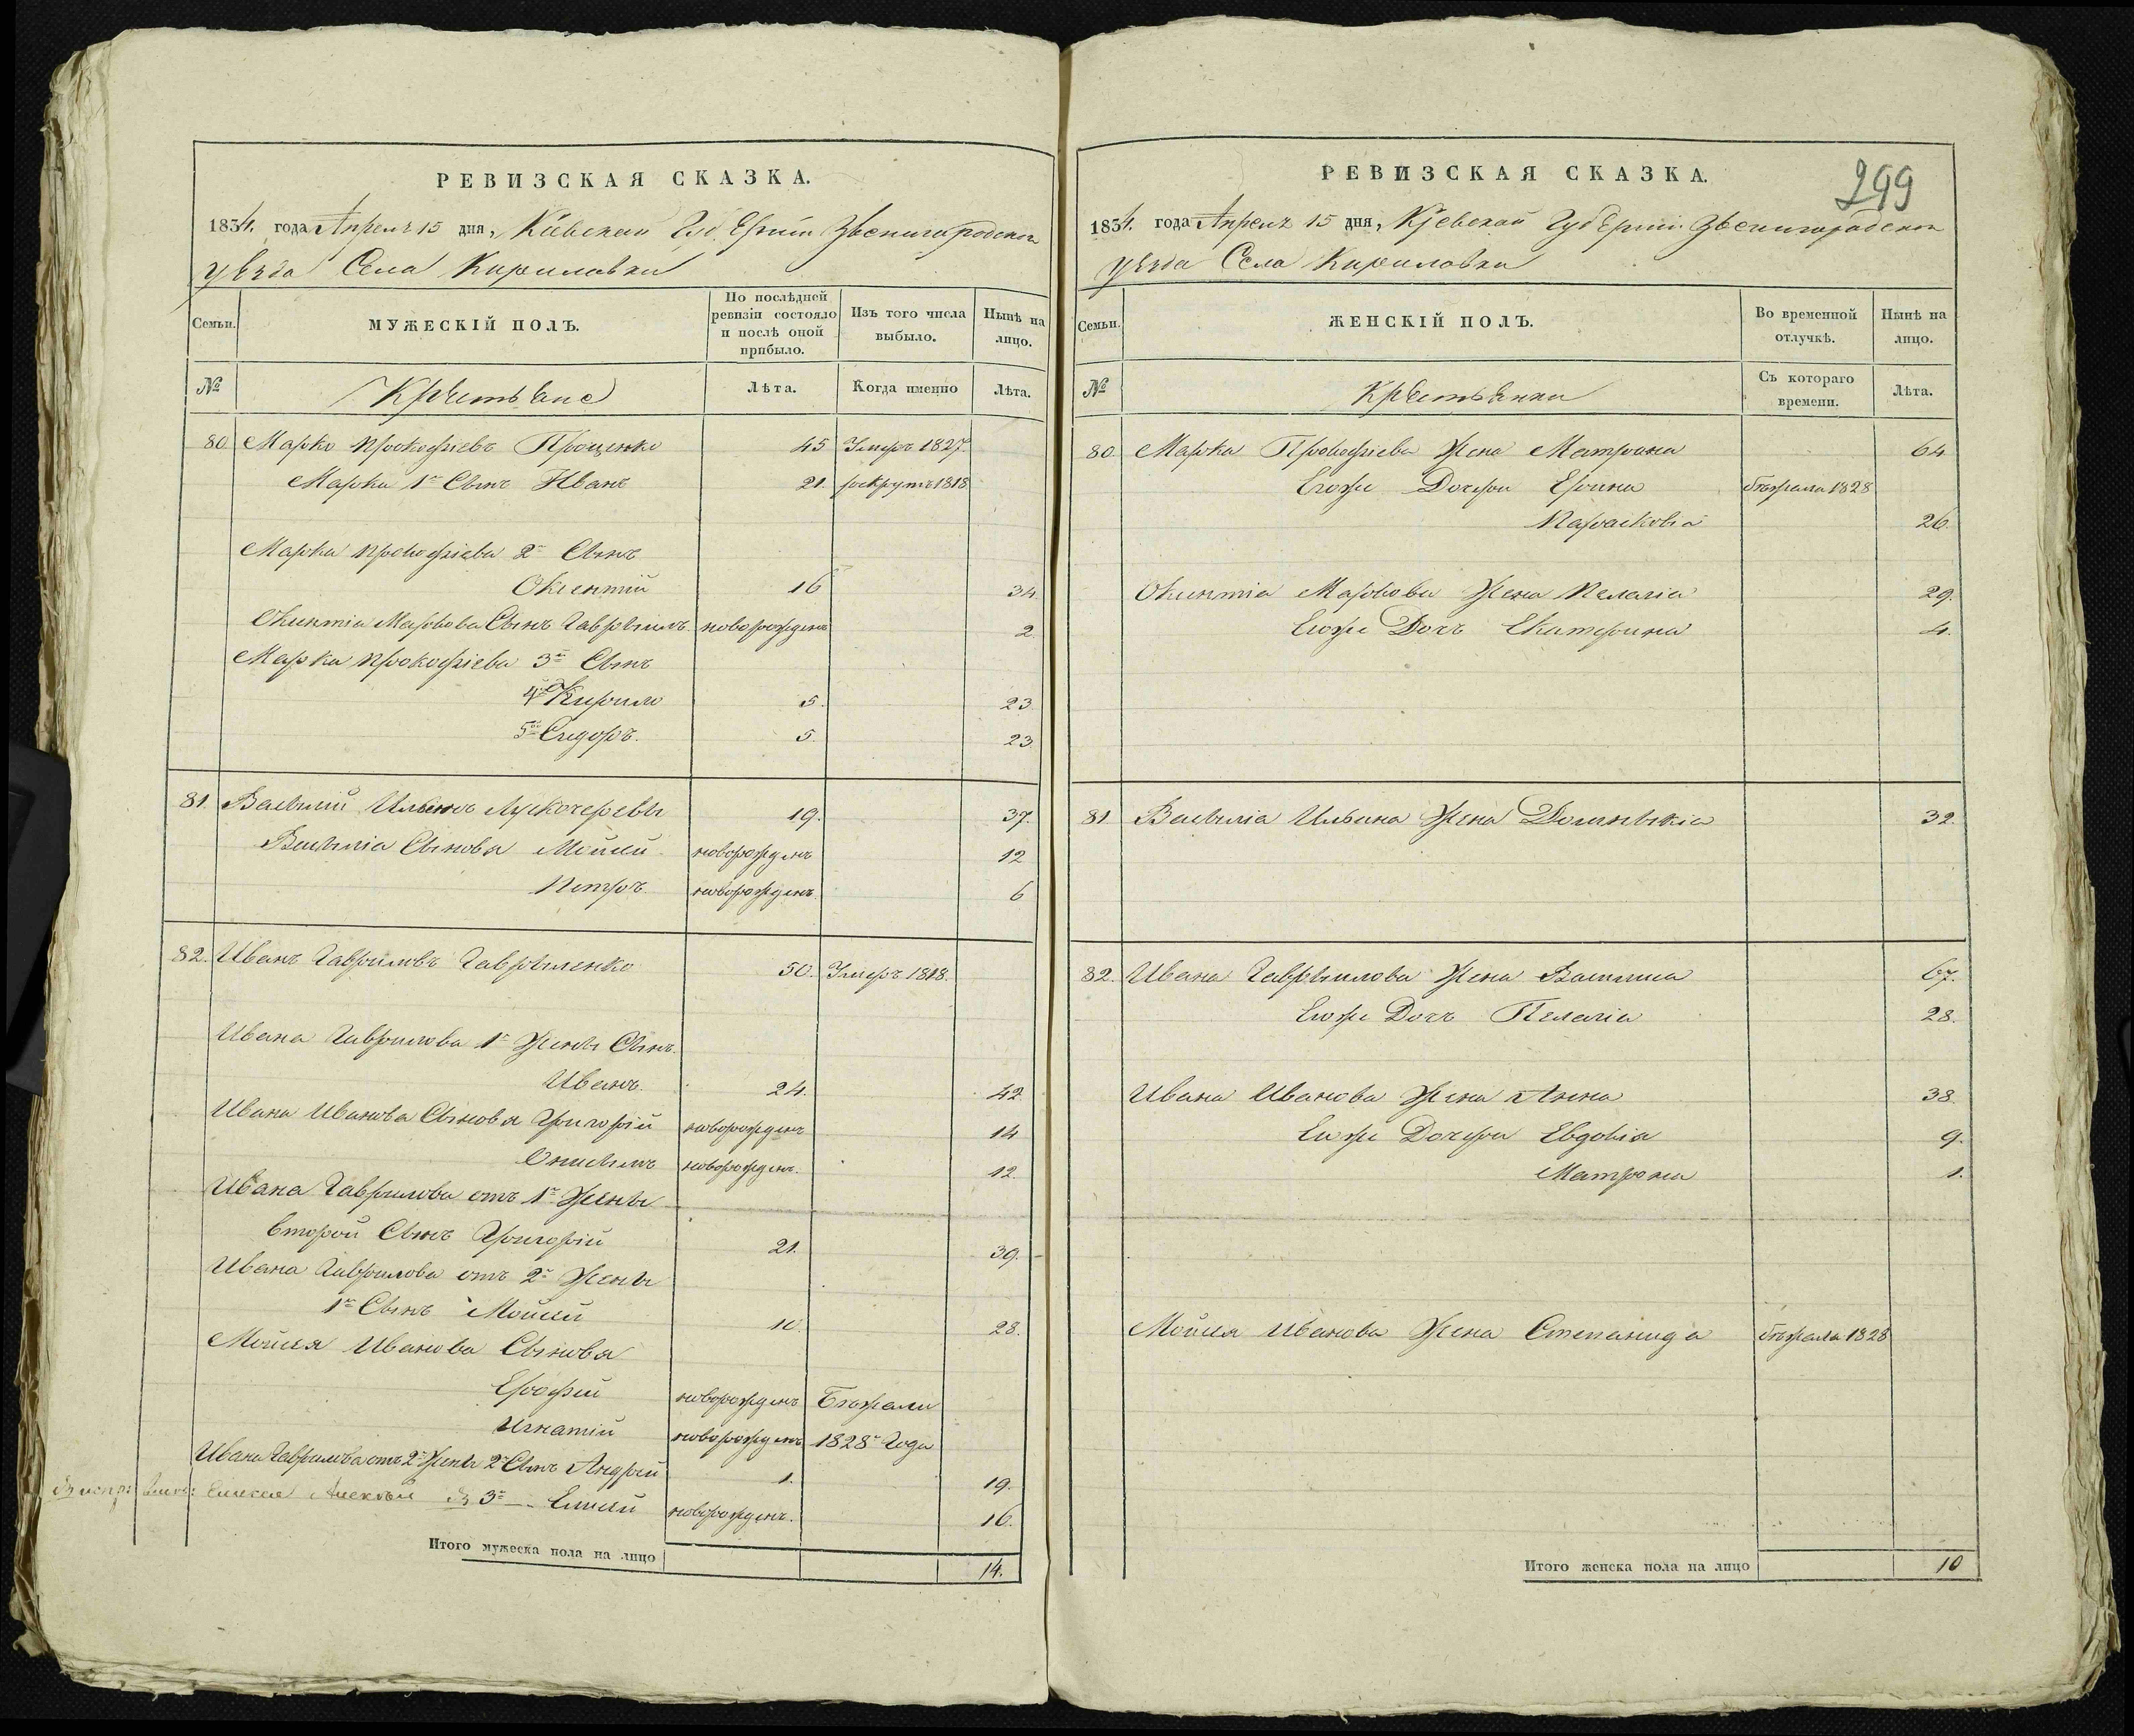 РЕВИЗСКАЯ СКАЗКА.
1834. года Апреля 15 дня, Кіевской Губерніи Звенигородского
уезда Села Кириловки
Семьи.
МУЖЕСКІЙ ПОЛЪ.
По послѣдней ревизіи состояло и послѣ оной прибыло.
Изъ того числа выбыло.
Нынѣ на лицо.
№
Крестьяне
Лѣта.
Когда именно
Лѣта.
80 Марко Прокофіевъ Проценко 45 Умеръ 1827.
Марка 1й Сынъ Иванъ 21. рекрутъ 1818
Марка Прокофіева 2й Сынъ
Окентій 16 34.
Окинтіа Маркова Сынъ Гаврыилъ новорожденъ 2.
Марка Прокофіева 3й Сынъ
4й Кирило 5. 23.
5й Сидоръ. 5. 23.
81. Василий Ильинъ 19. 37.
Василіа Сыновя Мойсей новорожденъ 12
Петръ. новорожденъ. 6
82. Иванъ Гавриловъ Гаврыленко 50. Умеръ 1818.
Ивана Гаврилова 1й Жены Сынъ.
Иванъ. 24. 42.
Ивана Иванова Сыновя Григорій новорожденъ 14
новорожденъ. 12.
Ивана Гаврилова отъ 1й Жены
Второй Сынъ Григорій 21. 39.
Ивана Гаврилова отъ 2й Жены
1й Сынъ Мойсей 10. 28.
Мойсея Иванова Сыновя
Ерофей новорожденъ Бежали
Игнатій новорожденъ 1828го Года
Ивана Гаврилова отъ 2й Жены 2й Сынъ Андрей 1. 19.
3й Елисей новорожденъ. 16.
Итого мужеска пола на лицо 14.
299
РЕВИЗСКАЯ СКАЗКА.
1834. года Апреля 15 дня, Кіевской Губерніи Звенигородского
уезда Села Кириловки
Семьи.
ЖЕНСКІЙ ПОЛЪ.
Во временной отлучкѣ.
Нынѣ на лицо.
№
Крестьянки
Съ котораго времени.
Лѣта.
80. Марка Прокофіева Жена Матрона 64
Егоже Дочери Ерина бежала 1828
Парасковіа 26.
Окинтіа Маркова Жена Пелагіа 29.
Егоже Дочъ Екатерина 4.
81. Василіа Ильина Жена Доминыкіа 32.
82. Ивана Гаврыилова Жена Василиса 67.
Егоже Дочъ Пелагіа 28.
Ивана Иванова Жена Анна 38.
Егоже Дочери Евдокіа 9.
Матрона 1.
Мойсея Иванова Жена Степанида бежала 1828
Итого женска пола на лицо 10